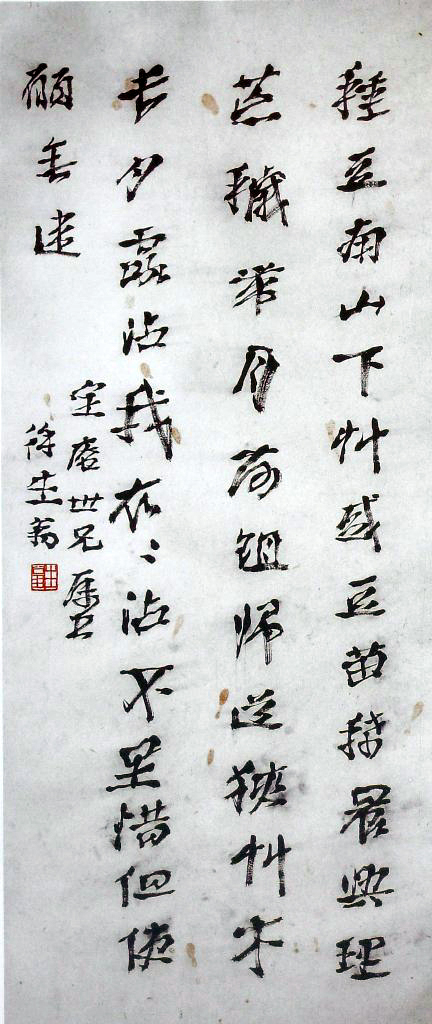 種豆南山下艸盛豆苗稀晨興理
荒穢帶月荷鉏歸道狹艸木
長夕露沾我衣〻沾不足惜但使
願無違
定庵世兄屬正
徐生翁